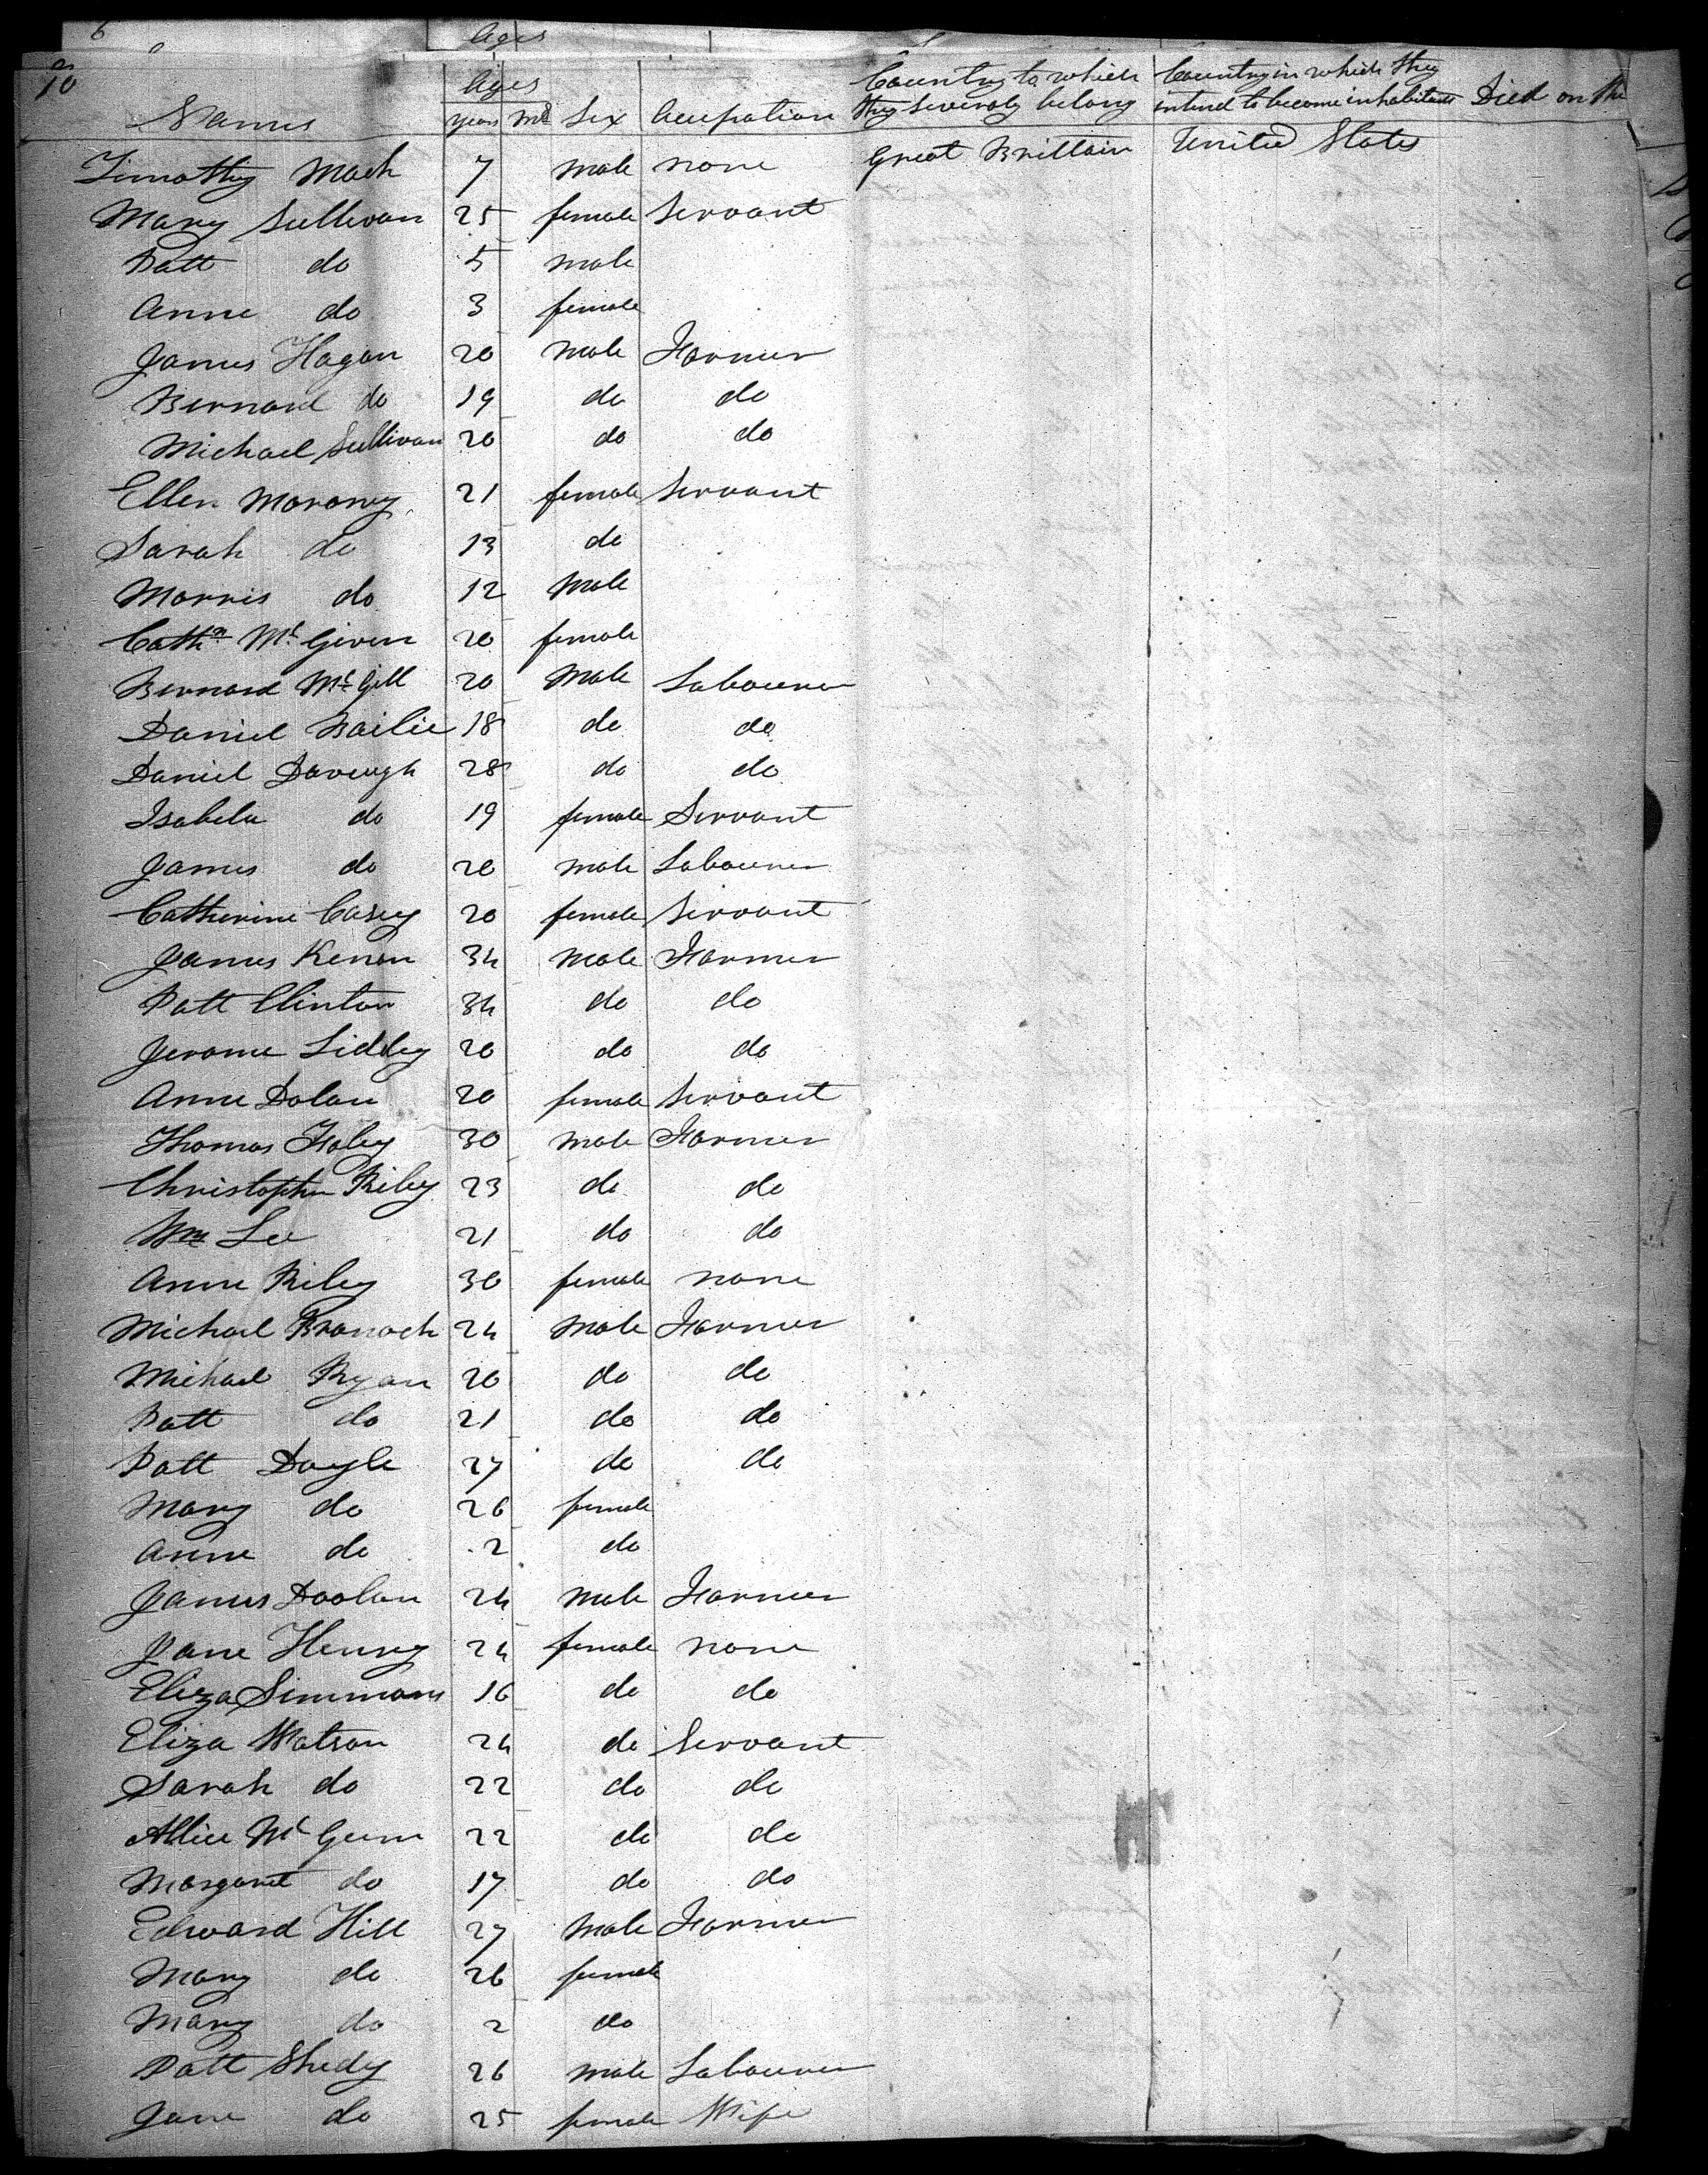 6 Ages
10
Names Ages years ms Sex Occupation Country to which they severaly belong Country in which they intend to become inhabitants Died on the
Timothy Mack 7 male none Great Brittain United States
Mary Sullivan 25 female Servant
Patt do 5 male
Anne do 3 female
James Hagan 20 male Farmer
Bernard do 19 do do
Michael Sullivan 20 do do
Ellen Morony 21 female Servant
Sarah do 13 do
Morris do 12 male
Cathn Mc Given 20 female
Bernard McGill 20 male Labourer
Daniel Bailie 18 do do
Daniel Daveugh 28 do do
Isabela do 19 female Servant
James do 20 male Labourer
Catherine Casey 20 female Servant
James Kenan 34 male Farmer
Patt Clinton 34 do do
Jerome Liddey 20 do do
Anne Dolan 20 female Servant
Thomas Foley 30 male Farmer
Christopher Riley 23 do do
Wm Lee 21 do do
Anne Riley 30 female none
Michael Branach 24 male Farmer
Michael Ryan 20 do do
Patt do 21 do do
Patt Doyle 27 do do
Mary do 26 female
Anne do 2 do
James Doolan 24 male Farmer
Jane Henry 24 female none
Eliza Simmons 16 do do
Eliza Watson 24 do Servant
Sarah do 22 do do
Allice Mc Gurn 22 do do
Margaret do 17 do do
Edward Hill 27 male Farmer
Mary do 26 female
Mary do 2 do
Patt Shedy 26 male Labourer
Jane do 25 female Wife